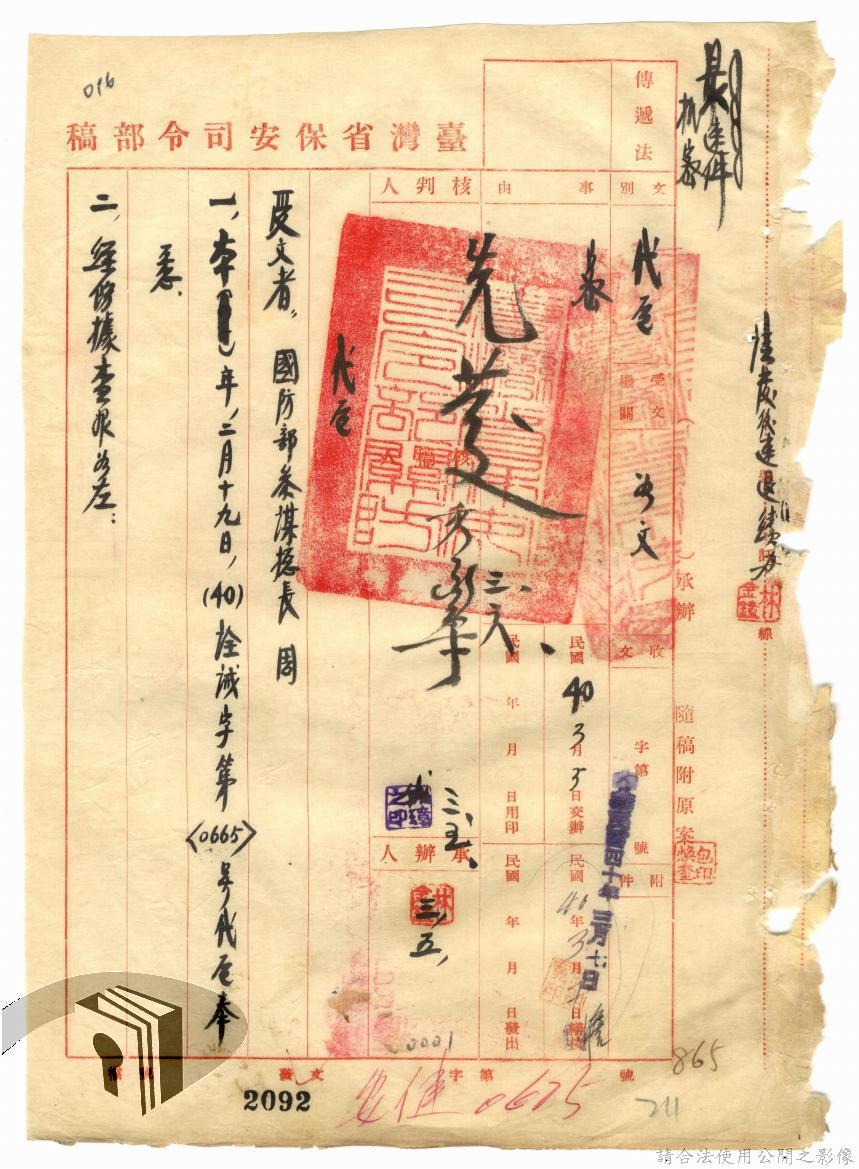 016
臺灣省保安司令部稿
傳遞法
最速件
文別
代電
事由
受文機關
如文
承辦
線
收文
字第
號
附件
隨稿附原案
民國40年3月5日交辦
民國40年3月
日繕校
民國 年 月 日用印
民國 年 月 日發出
四十年三月七日
核判人
先發
三、六、
核稿人
三、五、
承辦人
三、五、
代電
受文者：國防部參謀總長 周
一、本年，二月十九日，(40)
誠字第〈0665〉號代電奉
悉、
二、經飭據查報如左：
0001
檔號
2092
發文
字第
號
安健 0675
865
211
請合法使用公開之影像